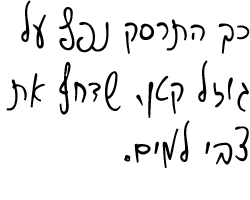 כך התרסק נפץ על
גוזל קטן, שדחף את
צבי למים.